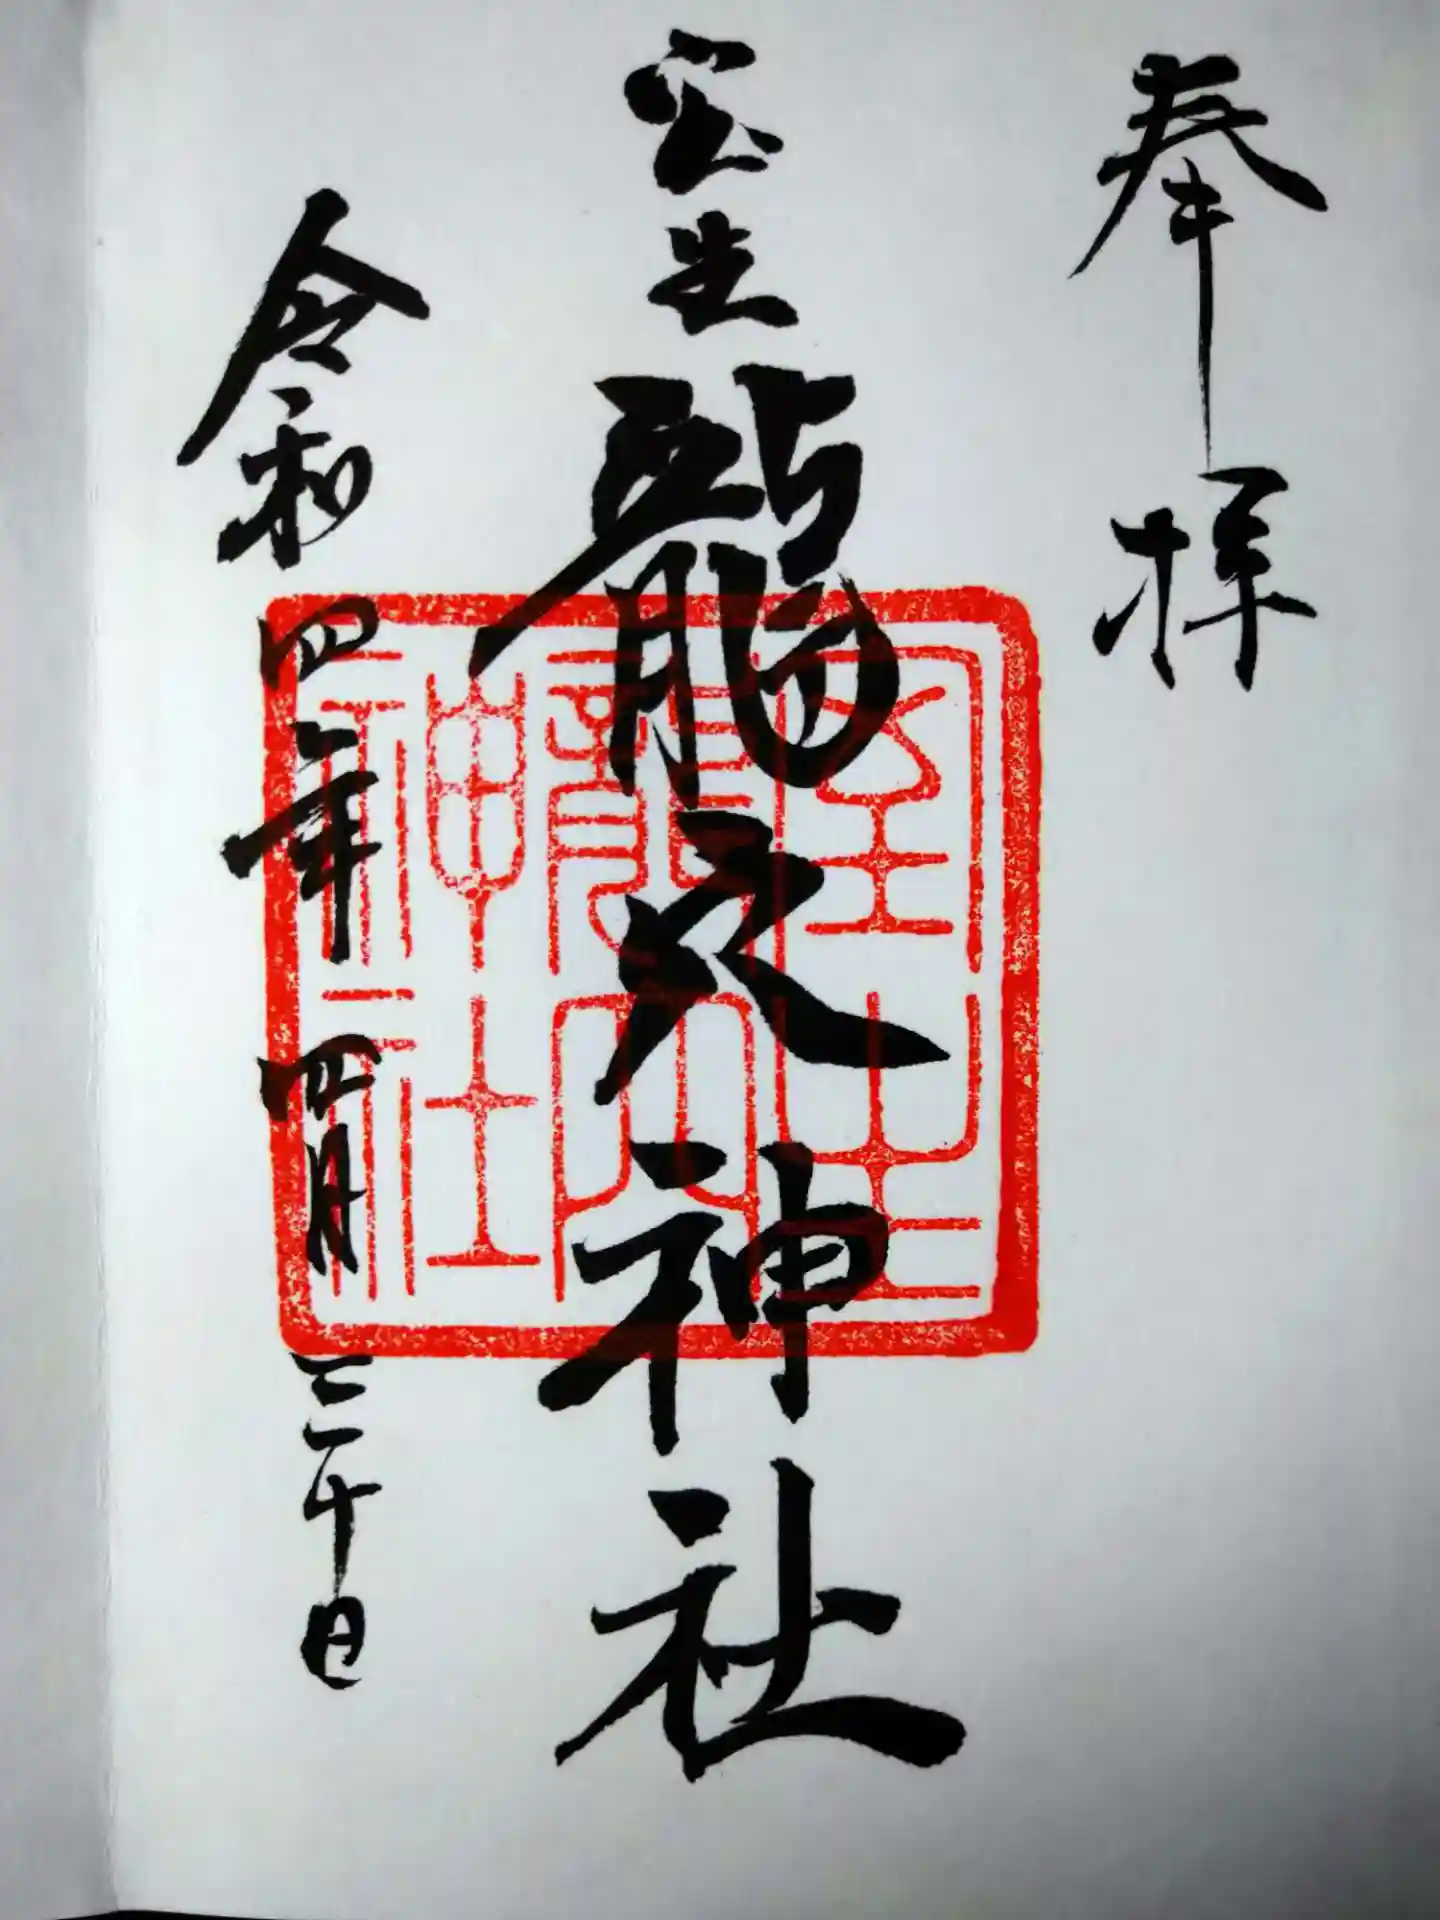 奉拝
室生龍穴神社
室生
龍穴
神社
令和四年四月三十日